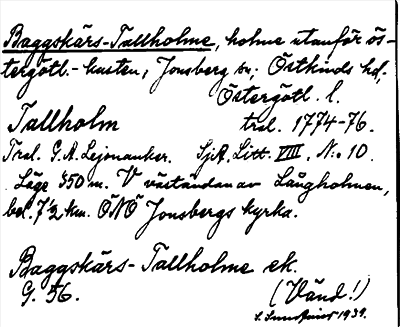 Baggskärs-Tallholme, holme utanför ös-
tergötl.-kusten, Jonsberg sn; Östkinds hd,
Östergötl. l.
Tallholm trol. 1774-76.
Trol. G. A. Lejonanker. SjA. Litt. VIII. N:o 10.
Läge 450 m. V väständan av Långholmen,
bel. 7½ km. ÖNÖ Jonsbergs kyrka.
Baggskärs-Tallholme ek.
G. 56. (Vänd!)
1939.